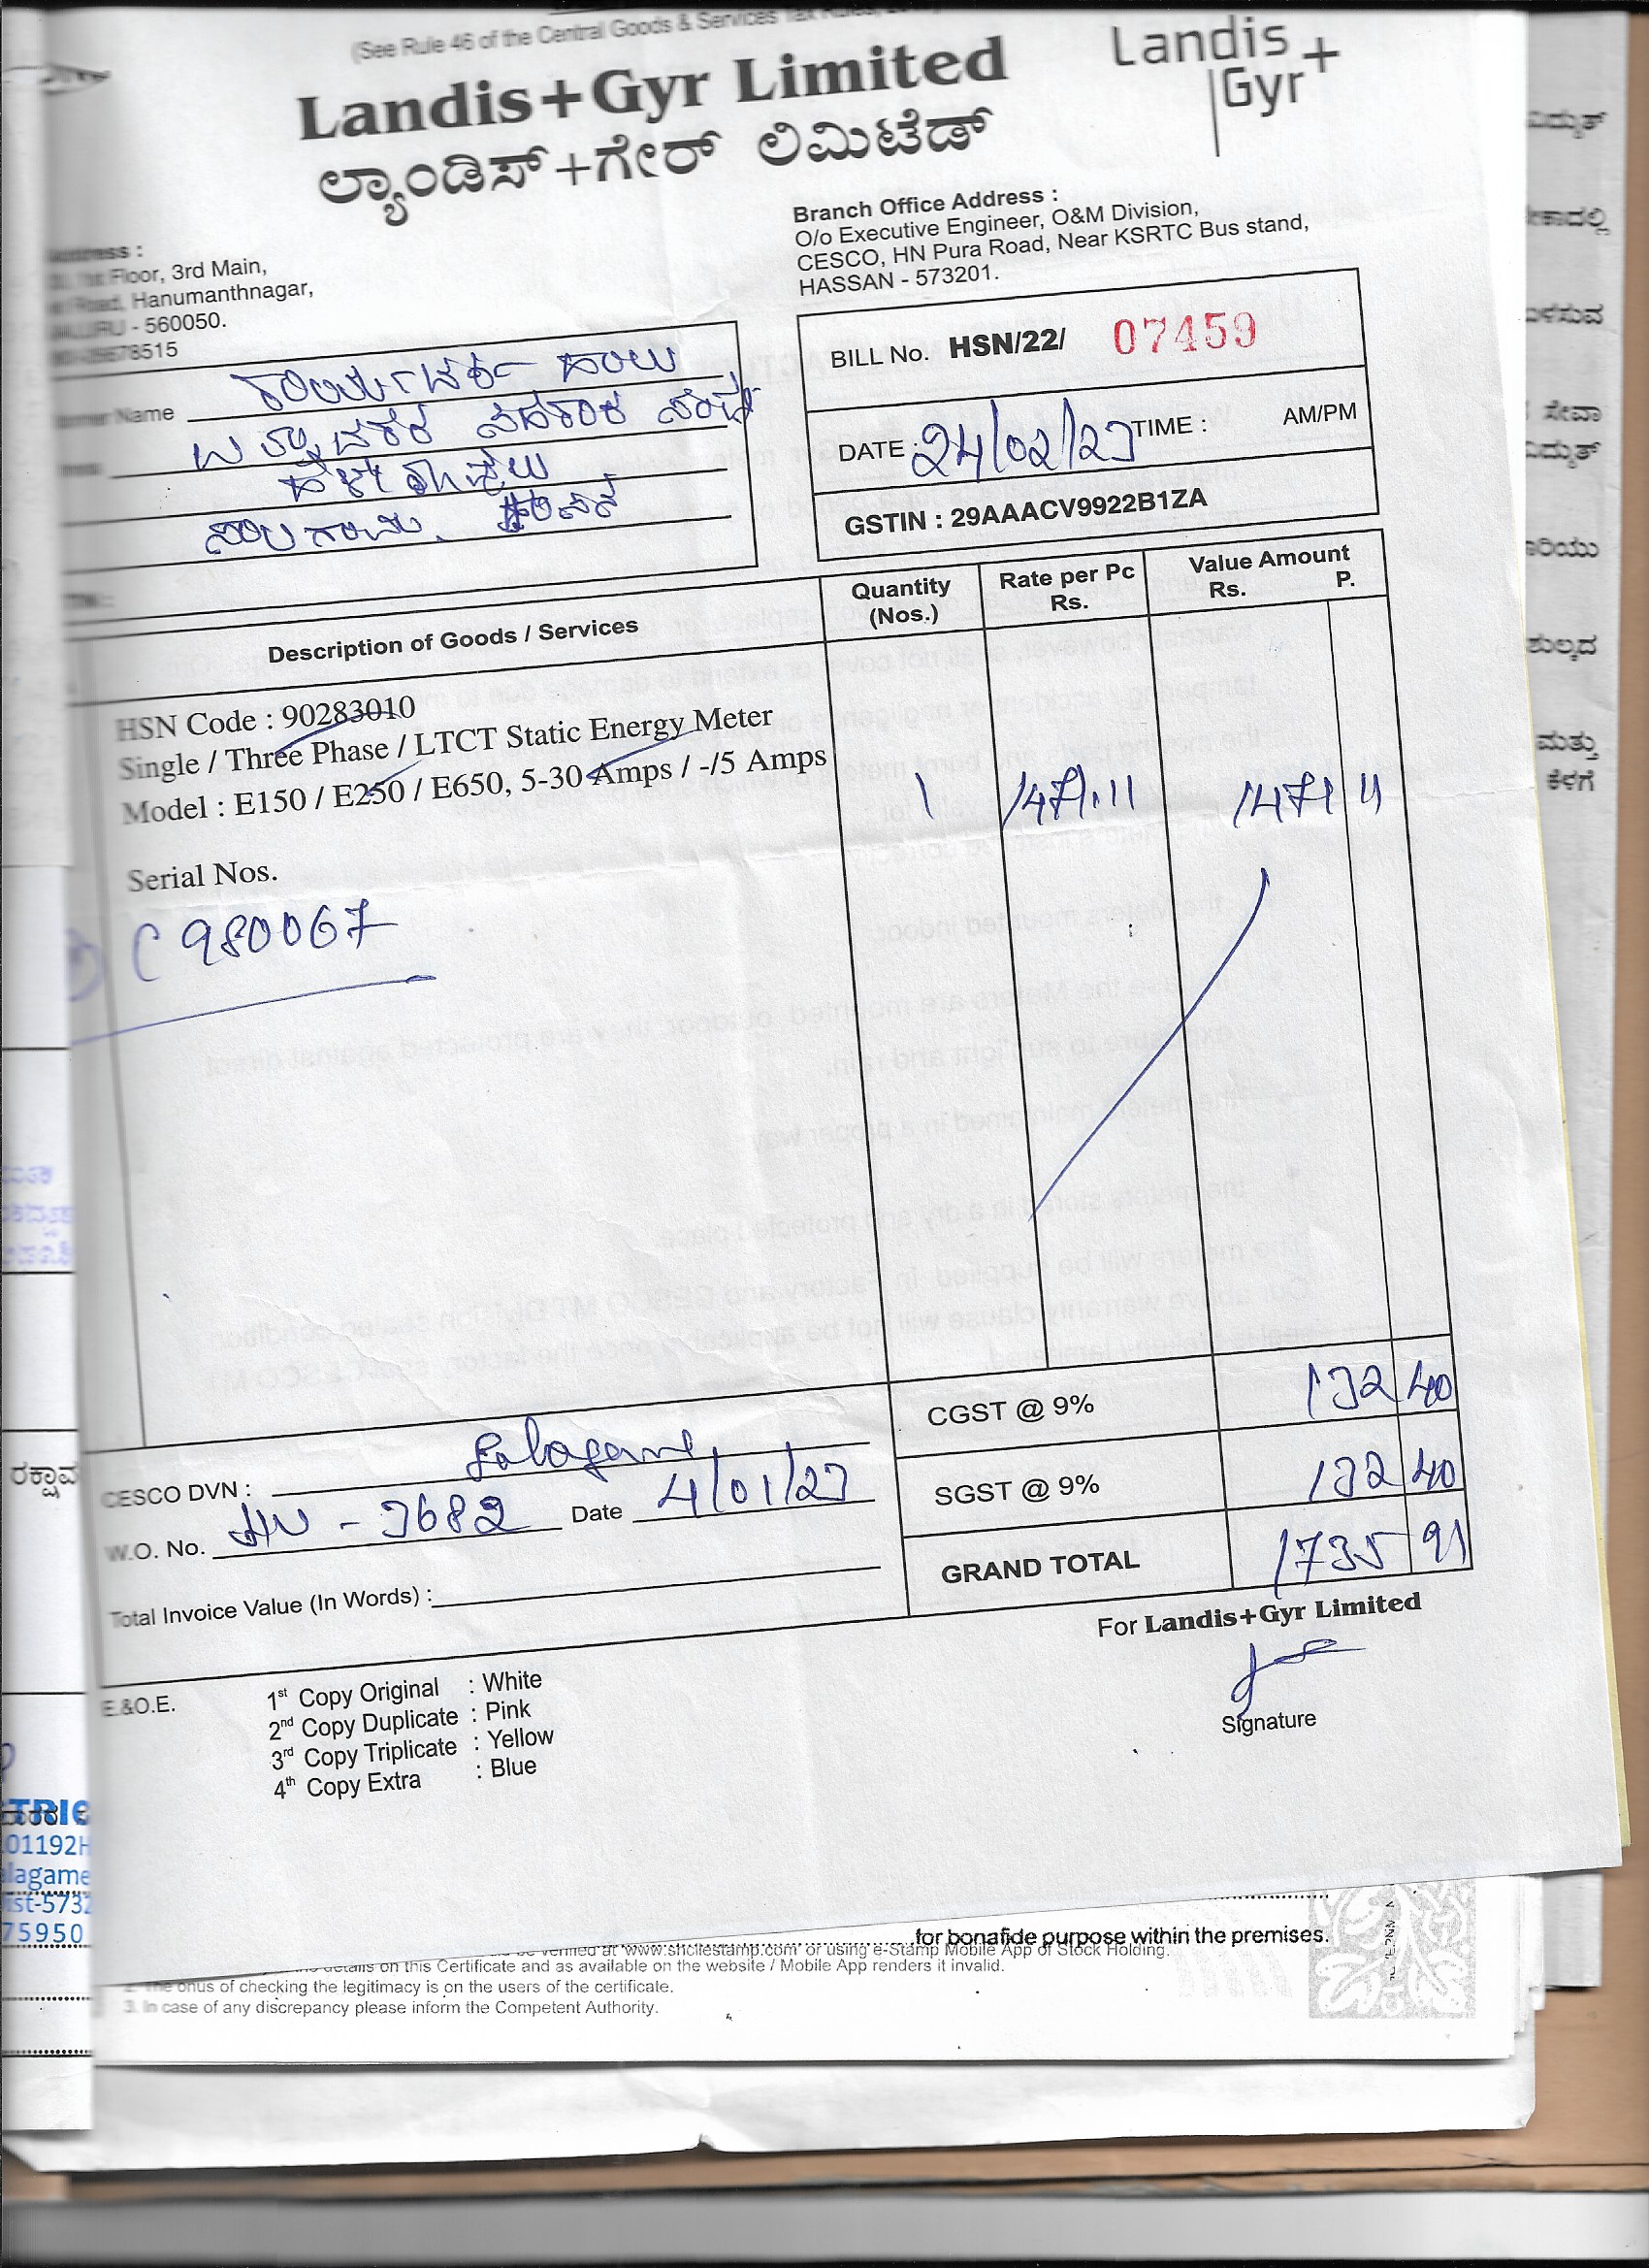 (See Rule 46 of the Central Goods & Services Tax Rules,
Landis+Gyr Limited
ಲ್ಯಾಂಡಿಸ್+ಗೇರ್ ಲಿಮಿಟೆಡ್
Landis+
Gyr
Address :
1st Floor, 3rd Main,
Road, Hanumanthnagar,
- 560050.
Branch Office Address :
O/o Executive Engineer, O&M Division,
CESCO, HN Pura Road, Near KSRTC Bus stand,
HASSAN - 573201.
Name
ಹಾಲು
ಸಹಕಾರ ಸಂಘ
ಸಾಲಗಾಮೆ. ಹಾಸನ
BILL No. HSN/22/ 07459
DATE : 24/02/23 TIME : AM/PM
GSTIN : 29AAACV9922B1ZA
Description of Goods / Services
Quantity (Nos.)
Rate per Pc Rs.
Value Amount Rs. P.
HSN Code : 90283010
Single / Three Phase / LTCT Static Energy Meter
Model : E150 / E250 / E650, 5-30 Amps / -/5 Amps
1 1471.11 1471 11
Serial Nos.
C980067
CGST @ 9% 132 40
SGST @ 9% 132 40
GRAND TOTAL 1735 91
CESCO DVN : Salagame
W.O. No. HN - 3682 Date 4/01/23
Total Invoice Value (In Words) :
For Landis+Gyr Limited
Signature
E.&O.E.
1st Copy Original : White
2nd Copy Duplicate : Pink
3rd Copy Triplicate : Yellow
4th Copy Extra : Blue
for bonafide purpose within the premises.
verified at 'www.shcilestamp.com' or using e-Stamp Mobile App of Stock Holding.
details on this Certificate and as available on the website / Mobile App renders it invalid.
2. The onus of checking the legitimacy is on the users of the certificate.
3. In case of any discrepancy please inform the Competent Authority.